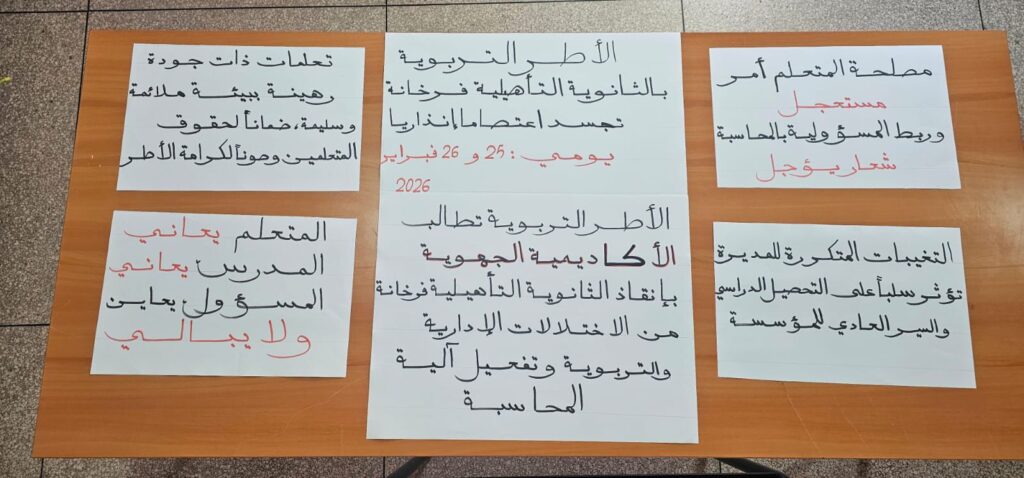 الأطر التربوية
بالثانوية التأهيلية فرخانة
تجسد اعتصاما إنذاريا
يومي: 25 و 26 فبراير
2026
الأطر التربوية تطالب
الأكاديمية الجهوية
بإنقاذ الثانوية التأهيلية فرخانة
من الاختلالات الإدارية
والتربوية وتفعيل آلية
المحاسبة
مصلحة المتعلم أمر
مستعجل
وربط المسؤولية بالمحاسبة
شعار يؤجل
التغيبات المتكررة للمديرة
تؤثر سلباً على التحصيل الدراسي
والسير العادي للمؤسسة
تعلمات ذات جودة
رهينة ببيئة ملائمة
وسليمة، ضماناً لحقوق
المتعلمين وصوناً لكرامة الأطر
المتعلم يعاني
المدرس يعاني
المسؤول يعاين
ولا يبالي